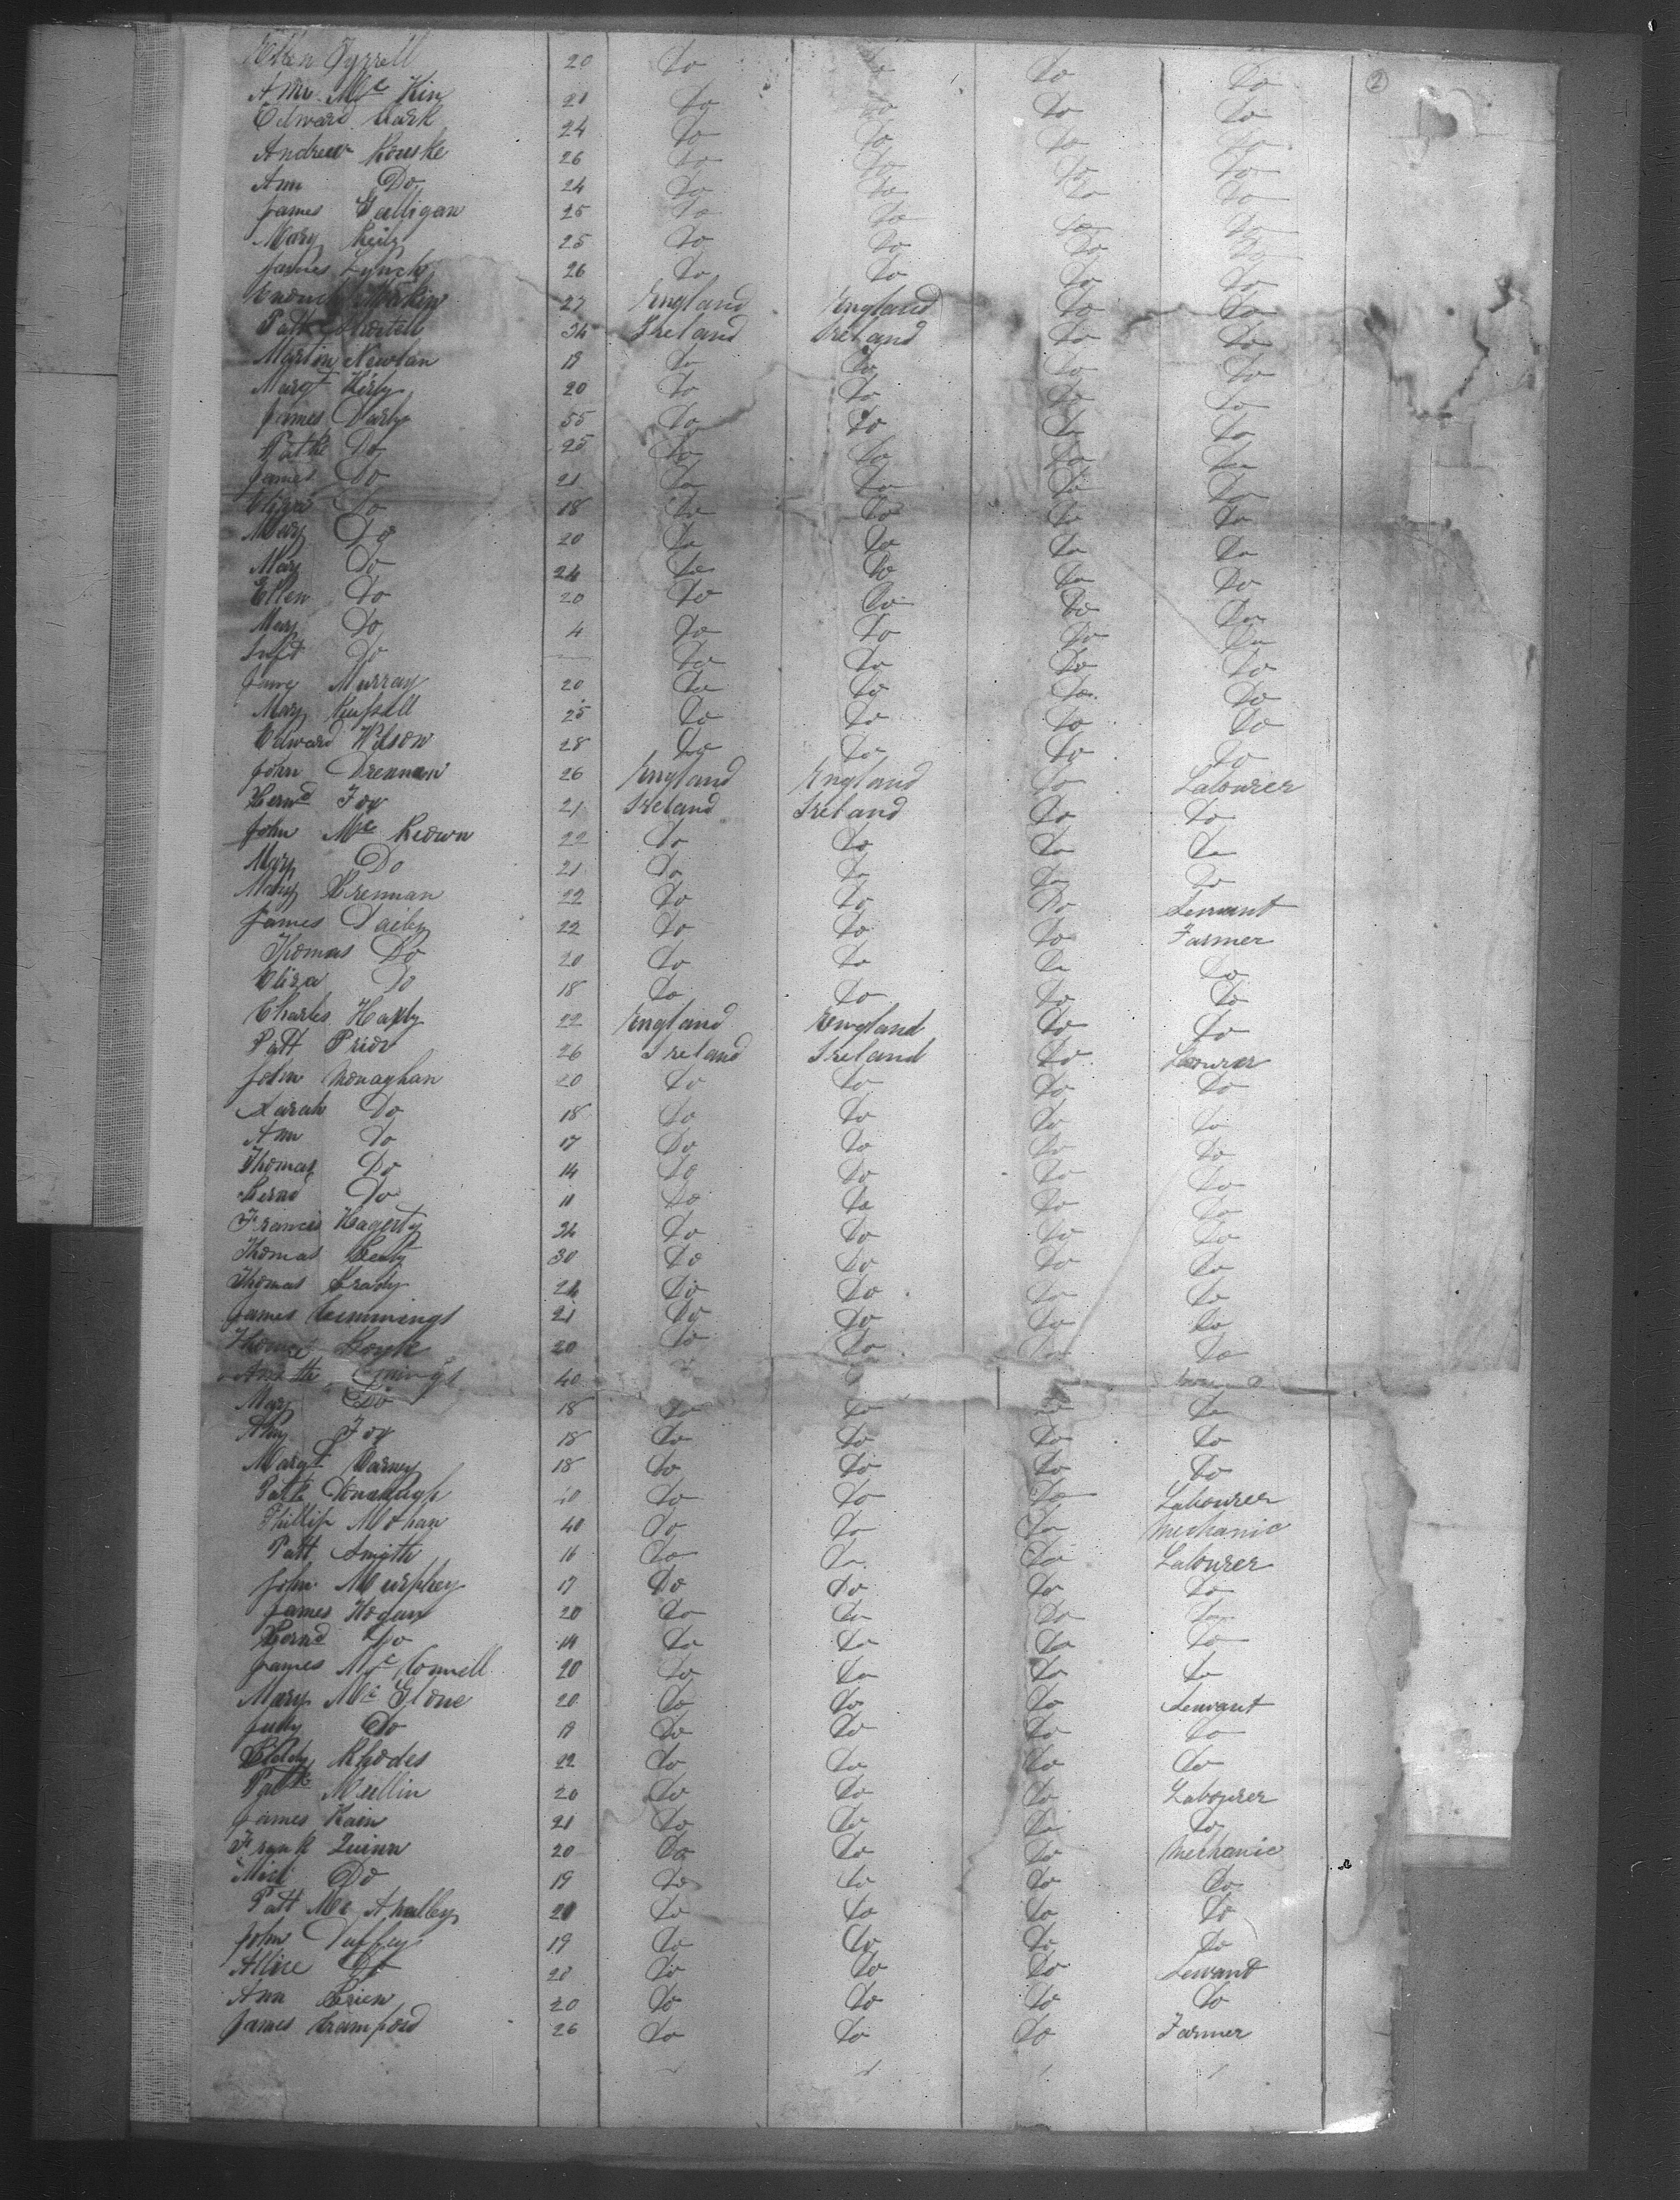 Ellen Tyrrell 20 Do Do Do Do
Ann Mc Kin 21 Do Do Do Do
Edward Clark 24 Do Do Do Do
Andrew Rourke 26 Do Do Do Do
Ann Do 24 Do Do Do Do
James Galligan 25 Do Do Do Do
Mary Reily 25 Do Do Do Do
James Lynch 26 Do Do Do Do
27 England England Do Do
Patk 34 Ireland Ireland Do Do
Martin Newlan Do Do Do Do
Margt Kirby 20 Do Do Do Do
James Darby 55 Do Do Do Do
Patk Do 25 Do Do Do Do
James Do 21 Do Do Do Do
Eliza Do 18 Do Do Do Do
Mary Do 20 Do Do Do Do
Mary Do 24 Do Do Do Do
Ellen Do 20 Do Do Do Do
Mary Do 4 Do Do Do Do
Inft Do — Do Do Do Do
Jane Murray 20 Do Do Do Do
Mary Russell 25 Do Do Do Do
Edward Wilson 28 Do Do Do Do
John Drennan 26 England England Do Labourer
Bernd Foy 21 Ireland Ireland Do Do
John Mc Keown 22 Do Do Do Do
Mary Do 21 Do Do Do Do
Mary Brennan 22 Do Do Do Servant
James Daily 22 Do Do Do Farmer
Thomas Do 20 Do Do Do Do
Eliza Do 18 Do Do Do Do
Charles 22 England England Do Do
Patt Prior 26 Ireland Ireland Do Labourer
John Monaghan 20 Do Do Do Do
Sarah Do 18 Do Do Do Do
Ann Do 17 Do Do Do Do
Thomas Do 14 Do Do Do Do
Bernd Do 11 Do Do Do Do
Francis Hagerty 34 Do Do Do Do
Thomas 30 Do Do Do Do
Thomas Brady 24 Do Do Do Do
James Cummings 21 Do Do Do Do
Thomas 20 Do Do Do Do
40
Mary Do 18 Do Do Do Do
Foy 18 Do Do Do Do
Margt Barney 18 Do Do Do Do
Patk Do Do Do Labourer
Phillip Mohan 40 Do Do Do Mechanic
Patt Smyth 16 Do Do Do Labourer
John Murphey 17 Do Do Do Do
James Hogan 20 Do Do Do Do
Bernd Do Do Do Do Do
James Mc Connell 20 Do Do Do Do
Mary Mc Glone 20 Do Do Do Servant
Judy Do Do Do Do Do
Rhodes 22 Do Do Do Do
Patk Mullin 20 Do Do Do Labourer
James Kain 21 Do Do Do Do
Frank Quinn 20 Do Do Do Mechanic
Mick Do 19 Do Do Do Do
Patt Mc Do Do Do Do
John Duffey 19 Do Do Do Do
Allice Do Do Do Do Servant
Ann Brien 20 Do Do Do Do
James Crawford 26 Do Do Do Farmer
2